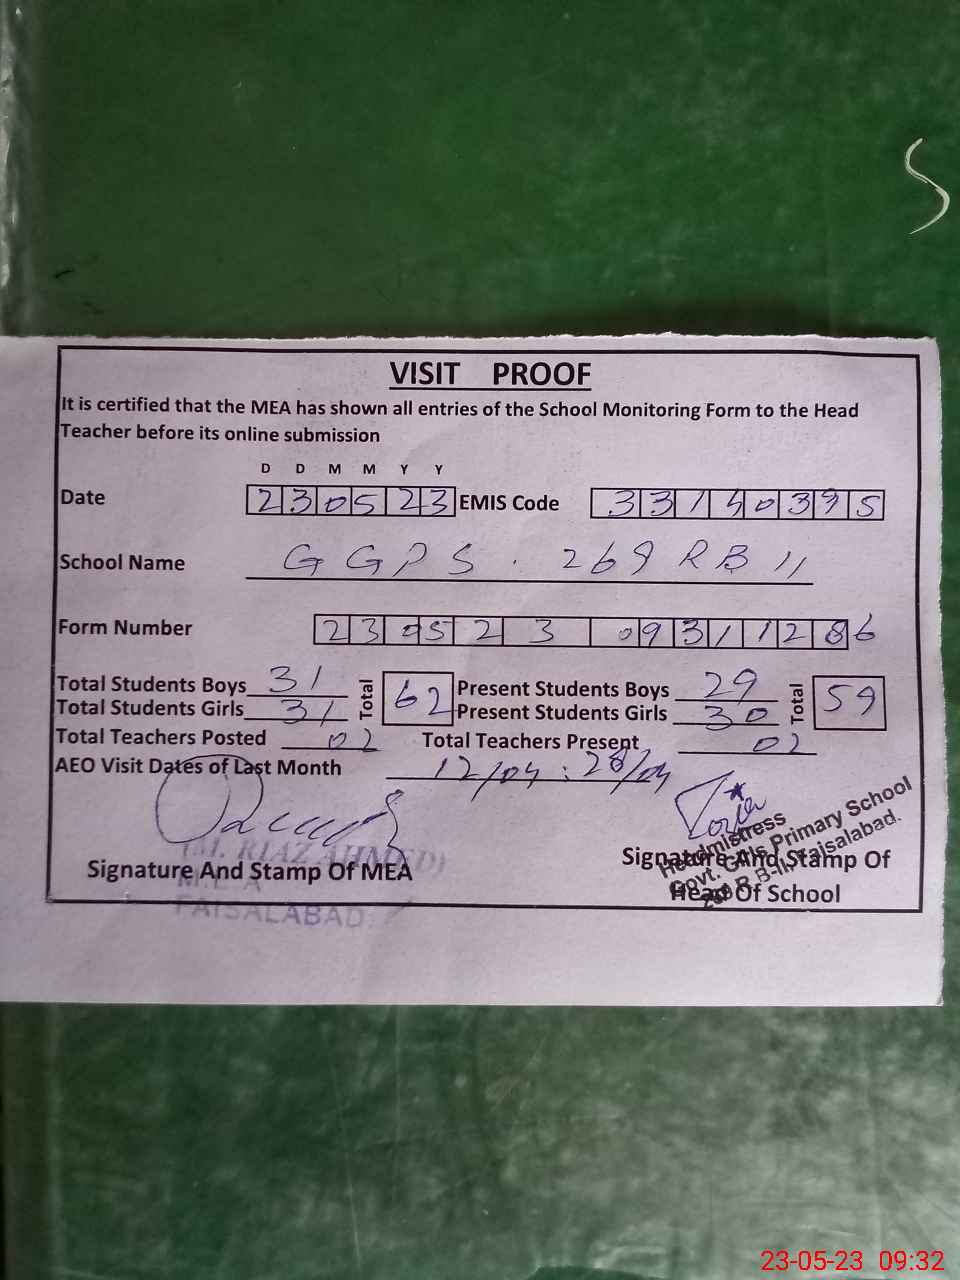 VISIT PROOF
It is certified that the MEA has shown all entries of the School Monitoring Form to the Head
Teacher before its online submission
D D M M Y Y
Date 230523 EMIS Code 33140395
School Name GGPS. 269 RB II
Form Number 23052309311286
Total Students Boys 31 Total 62 Present Students Boys 29 Total 59
Total Students Girls 31 Present Students Girls 30
Total Teachers Posted 02 Total Teachers Present 02
AEO Visit Dates of Last Month 12/04 : 28/04
(M. RIAZ AHMED)
M.E.A
FAISALABAD
Signature And Stamp Of MEA
Headmistress
Govt. Girls Primary School
269 R.B-II, Faisalabad.
Signature And Stamp Of
Head Of School
23-05-23 09:32